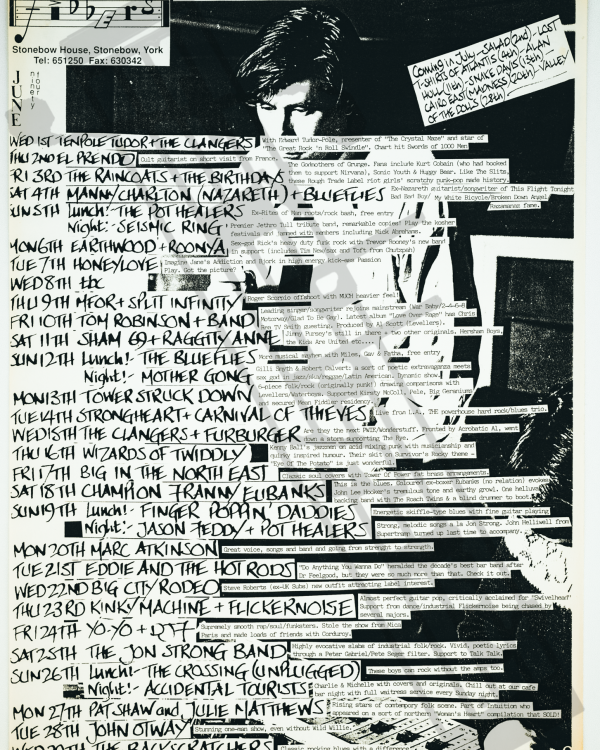 Fibbers
Stonebow House, Stonebow, York
Tel: 651250 Fax: 630342
JUNE
ninety four
Coming in July - SALAD (2nd) - LOST
T-SHIRTS OF ATLANTIS (9th) - ALAN
HULL (11th) - SNAKE DAVIS (13th) -
CAIRO EAST/MADNESS (20th) - VALLEY
OF THE DOLLS (28th)
WED 1ST TENPOLE TUDOR + THE CLANGERS
With Edward Tudor-Pole, presenter of "The Crystal Maze" and star of
"The Great Rock 'n Roll Swindle". Chart hit Swords of 1000 Men
THU 2ND EL PRENDO
Cult guitarist on short visit from France.
FRI 3RD THE RAINCOATS + THE BIRTHDAYS
The Godmothers of Grunge. Fans include Kurt Cobain (who had hooked
them to support Nirvana), Sonic Youth & Huggy Bear. Like The Slits,
these Rough Trade label riot girls' scratchy punk-pop made history.
SAT 4TH MANNY CHARLTON (NAZARETH) + BLUEFLIES
Ex-Nazareth guitarist/songwriter of This Flight Tonight
Bad Bad Boy/ My White Bicycle/Broken Down Angel
Razamanaz fame.
SUN 5TH Lunch!- THE POT HEALERS
Ex-Rites of Man roots/rock bash, free entry
Night:- SEISMIC RING
Premier Jethro Tull tribute band, remarkable copies! Play the kosher
festivals and jammed with members including Mick Abrahams.
MON 6TH EARTHWOOD + ROONYA
Sex-god Rick's heavy duty folk rock with Trevor Rooney's new band
in support (includes Tim New and Toft from Chutzpah)
TUE 7TH HONEYLOVE
Imagine Jane's Addiction and Bjork in high energy kick-ass Passion
Play. Got the picture?
WED 8TH tbc
THU 9TH MFOR + SPLIT INFINITY
Roger Scorpio offshoot with MUCH heavier feel
FRI 10TH TOM ROBINSON + BAND
Leading singer/songwriter rejoins mainstream (War Baby/2-4-6-8
Motorway/Glad To Be Gay). Latest album "Love Over Rage" has Chris
Rea TV Smith guesting. Produced by Al Scott (Levellers).
SAT 11TH SHAM 69 + RAGGITY ANNE
Jimmy Pursey's still in there + two other originals. Hersham Boys,
the Kids Are United etc..
SUN 12TH Lunch!- THE BLUEFLIES
More musical mayhem with Miles, Gav & Pythe, free entry
Night!- MOTHER GONG
Gilli Smyth & Robert Calvert: a sort of poetic extravaganza meets
sex god in jazz/ska/reggae/Latin American. Dynamic show!
MON 13TH TOWER STRUCK DOWN
6-piece folk/rock (originally punk) drawing comparisons with
Levellers/Waterboys. Supported Kirsty McColl, Pele, Big Geraniums
and secured Mean Fiddler residency.
TUE 14TH STRONGHEART + CARNIVAL OF THIEVES
from L.A. THE powerhouse hard rock/blues trio.
WED 15TH THE CLANGERS + FURBURGER
Are they the next PWEI/Wonderstuff. Fronted by Acrobatic Al, went
down a storm supporting The Rye.
THU 16TH WIZARDS OF TWIDDLY
Kenny Ball's jazzmen on acid mixing punk with musicianship and
quirky inspired humour. Their skit on Survivor's Rocky theme -
"Eye Of The Potato" is just wonderful.
FRI 17TH BIG IN THE NORTH EAST
Classic soul covers with Tower Of Power fat brass arrangements.
SAT 18TH CHAMPION FRANNY EUBANKS
This is the blues. Coloured ex-boxer Eubanks (no relation) evokes
John Lee Hooker's tremulous tone and earthy growl. One helluva
backing band with The Roach Twins & a blind drummer to boot.
SUN 19TH Lunch!- FINGER POPPIN' DADDIES
Energetic skiffle-type blues with fine guitar playing
Night:- JASON FEDDY + POT HEALERS
Strong, melodic songs a la Jon Strong. John Helliwell from
Supertramp turned up last time to accompany.
MON 20TH MARC ATKINSON
Great voice, songs and band and going from strength to strength.
TUE 21ST EDDIE AND THE HOT RODS
"Do Anything You Wanna Do" heralded the decade's best bar band after
Dr Feelgood, but they were so much more than that. Check it out.
WED 22ND BIG CITY RODEO
Steve Roberts (ex-UK Subs) new outfit attracting label interest.
THU 23RD KINKY MACHINE + FLICKERNOISE
Almost perfect guitar pop, critically acclaimed for "Swivelhead"
Support from dance/industrial Flickernoise being chased by
several majors.
FRI 24TH YO-YO +
Supremely smooth rap/soul/funksters. Stole the show from Mica
Paris and made loads of friends with Corduroy.
SAT 25TH THE JON STRONG BAND
Highly evocative slabs of industrial folk/rock. Vivid, poetic lyrics
through a Peter Gabriel/Pete Seger filter. Support to Talk Talk.
SUN 26TH Lunch!- THE CROSSING (UNPLUGGED)
These boys can rock without the amps too.
Night!- ACCIDENTAL TOURISTS
Charlie & Michelle with covers and originals. Chill out at our cafe
bar night with full waitress service every Sunday night.
MON 27TH PAT SHAW and JULIE MATTHEWS
Rising stars of contemporary folk scene. Part of Intuition who
appeared on a sort of northern "Woman's Heart" compilation that SOLD!
TUE 28TH JOHN OTWAY
Stunning one-man show, even without Wild Willie.
WED 29TH THE BACKSCRATCHERS
Classic rocking blues with a difference